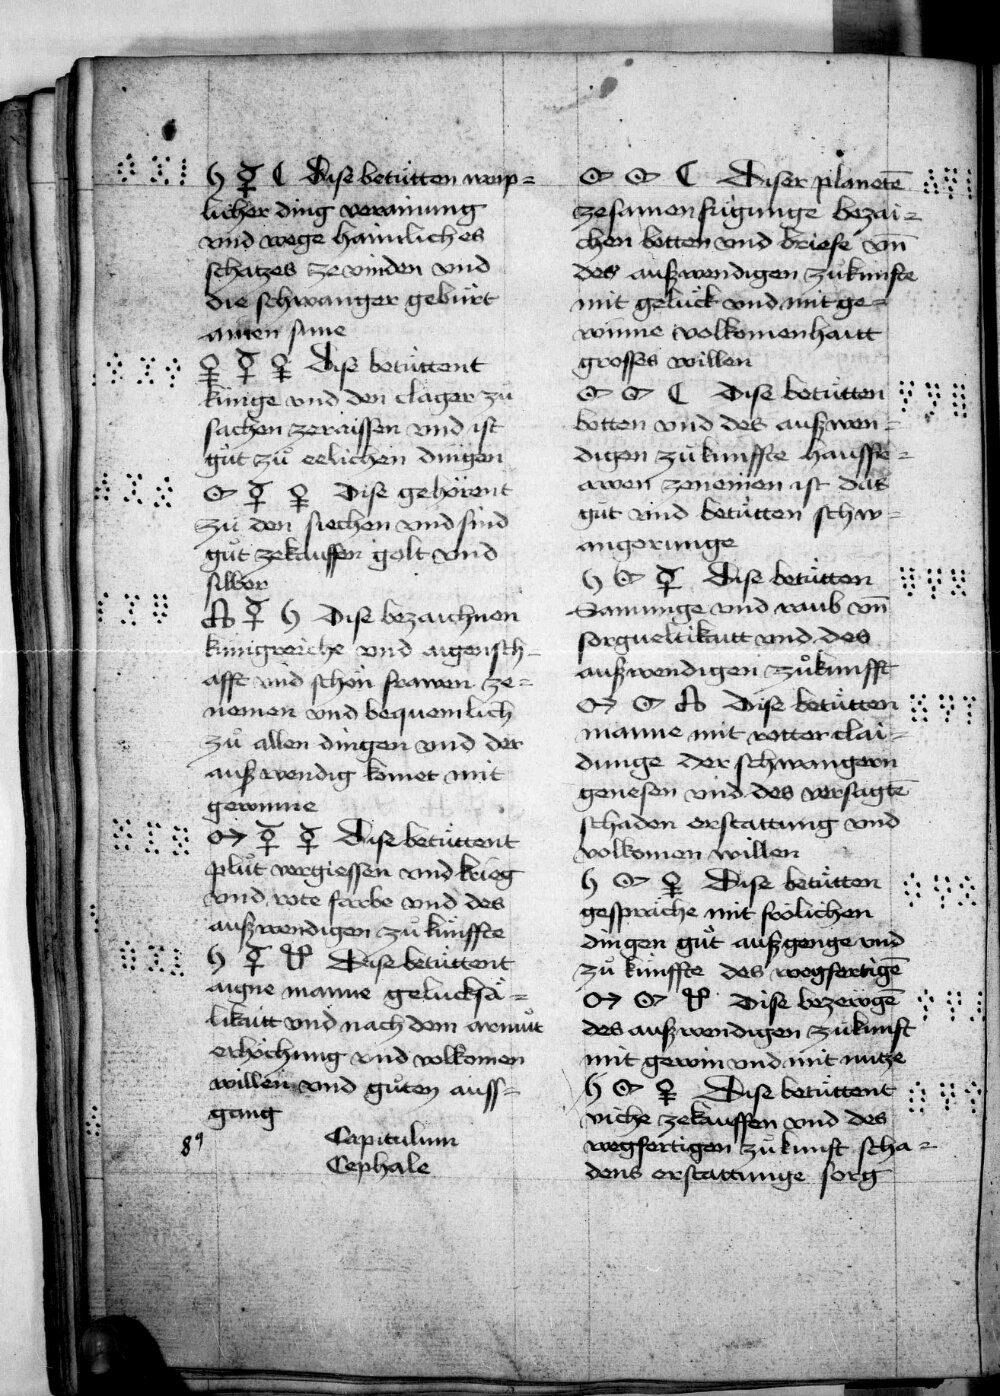 ♄ ☿ ☾ Dise betütten weip=
licher ding verainung
vnd wege haimliches
schatzes ze vinden vnd
die schwanger gebürt
ainen sune
♀ ☿ ♀ Dise betüttent
künige vnd den clager zů
sachen zeraissen vnd ist
gůt zů eelichen dingen
☿ ♀ Dise gehörent
zů den siechen vnd sind
gůt zekauffen golt vnd
silber
☿ ♄ Dise bezaichnen
künigreiche vnd aigensch-
afft vnd schön frawen ze=
nemen vnd bequemlich
zů allen dingen vnd der
außwendig komet mit
gewinne
♂ ☿ ☿ Dise betüttent
plůt vergiessen vnd krieg
vnd rote farbe vnd des
außwendigen zůkünffte
♄ ☿ Dise betüttent
aigne manne gelücksä=
likaitt vnd nach dem armůt
erhöchung vnd volkomen
willen vnd gůten auss=
gang
89 Capitulum
Cephale
☾ Diser planetē
zesamenfügunge bezai=
chen botten vnd briefe vn̄
des außwendigen zůkunfte
mit gelück vnd mit ge=
winne volkomenhaitt
grosses willen
☾ Dise betütten
botten vnd des außwen=
digen zůkunffte hausfr=
awen zenemen ist das
gůt vnd betütten schw=
angerunge
♄ ☿ Dise betütten
Samnunge vnd raub vn̄
sorgueltikaitt vnd des
außwendigen zůkunfft
♂ Dise betütten
manne mit rotter clai-
dunge der schwangern
genesen vnd des versagtē
schaden erstattung vnd
volkomen willen
♄ ♀ Dise betütten
gespräche mit frölichen
dingen gůt außgenge vnd
zůkünffte des wegfertigē
♂ Dise bezewgē
des außwendigen zůkunft
mit gewin vnd mit nutze
♄ ♀ Dise betüttent
viche zekauffen vnd des
wegfertigen zůkunft scha=
dens erstattunge sorg